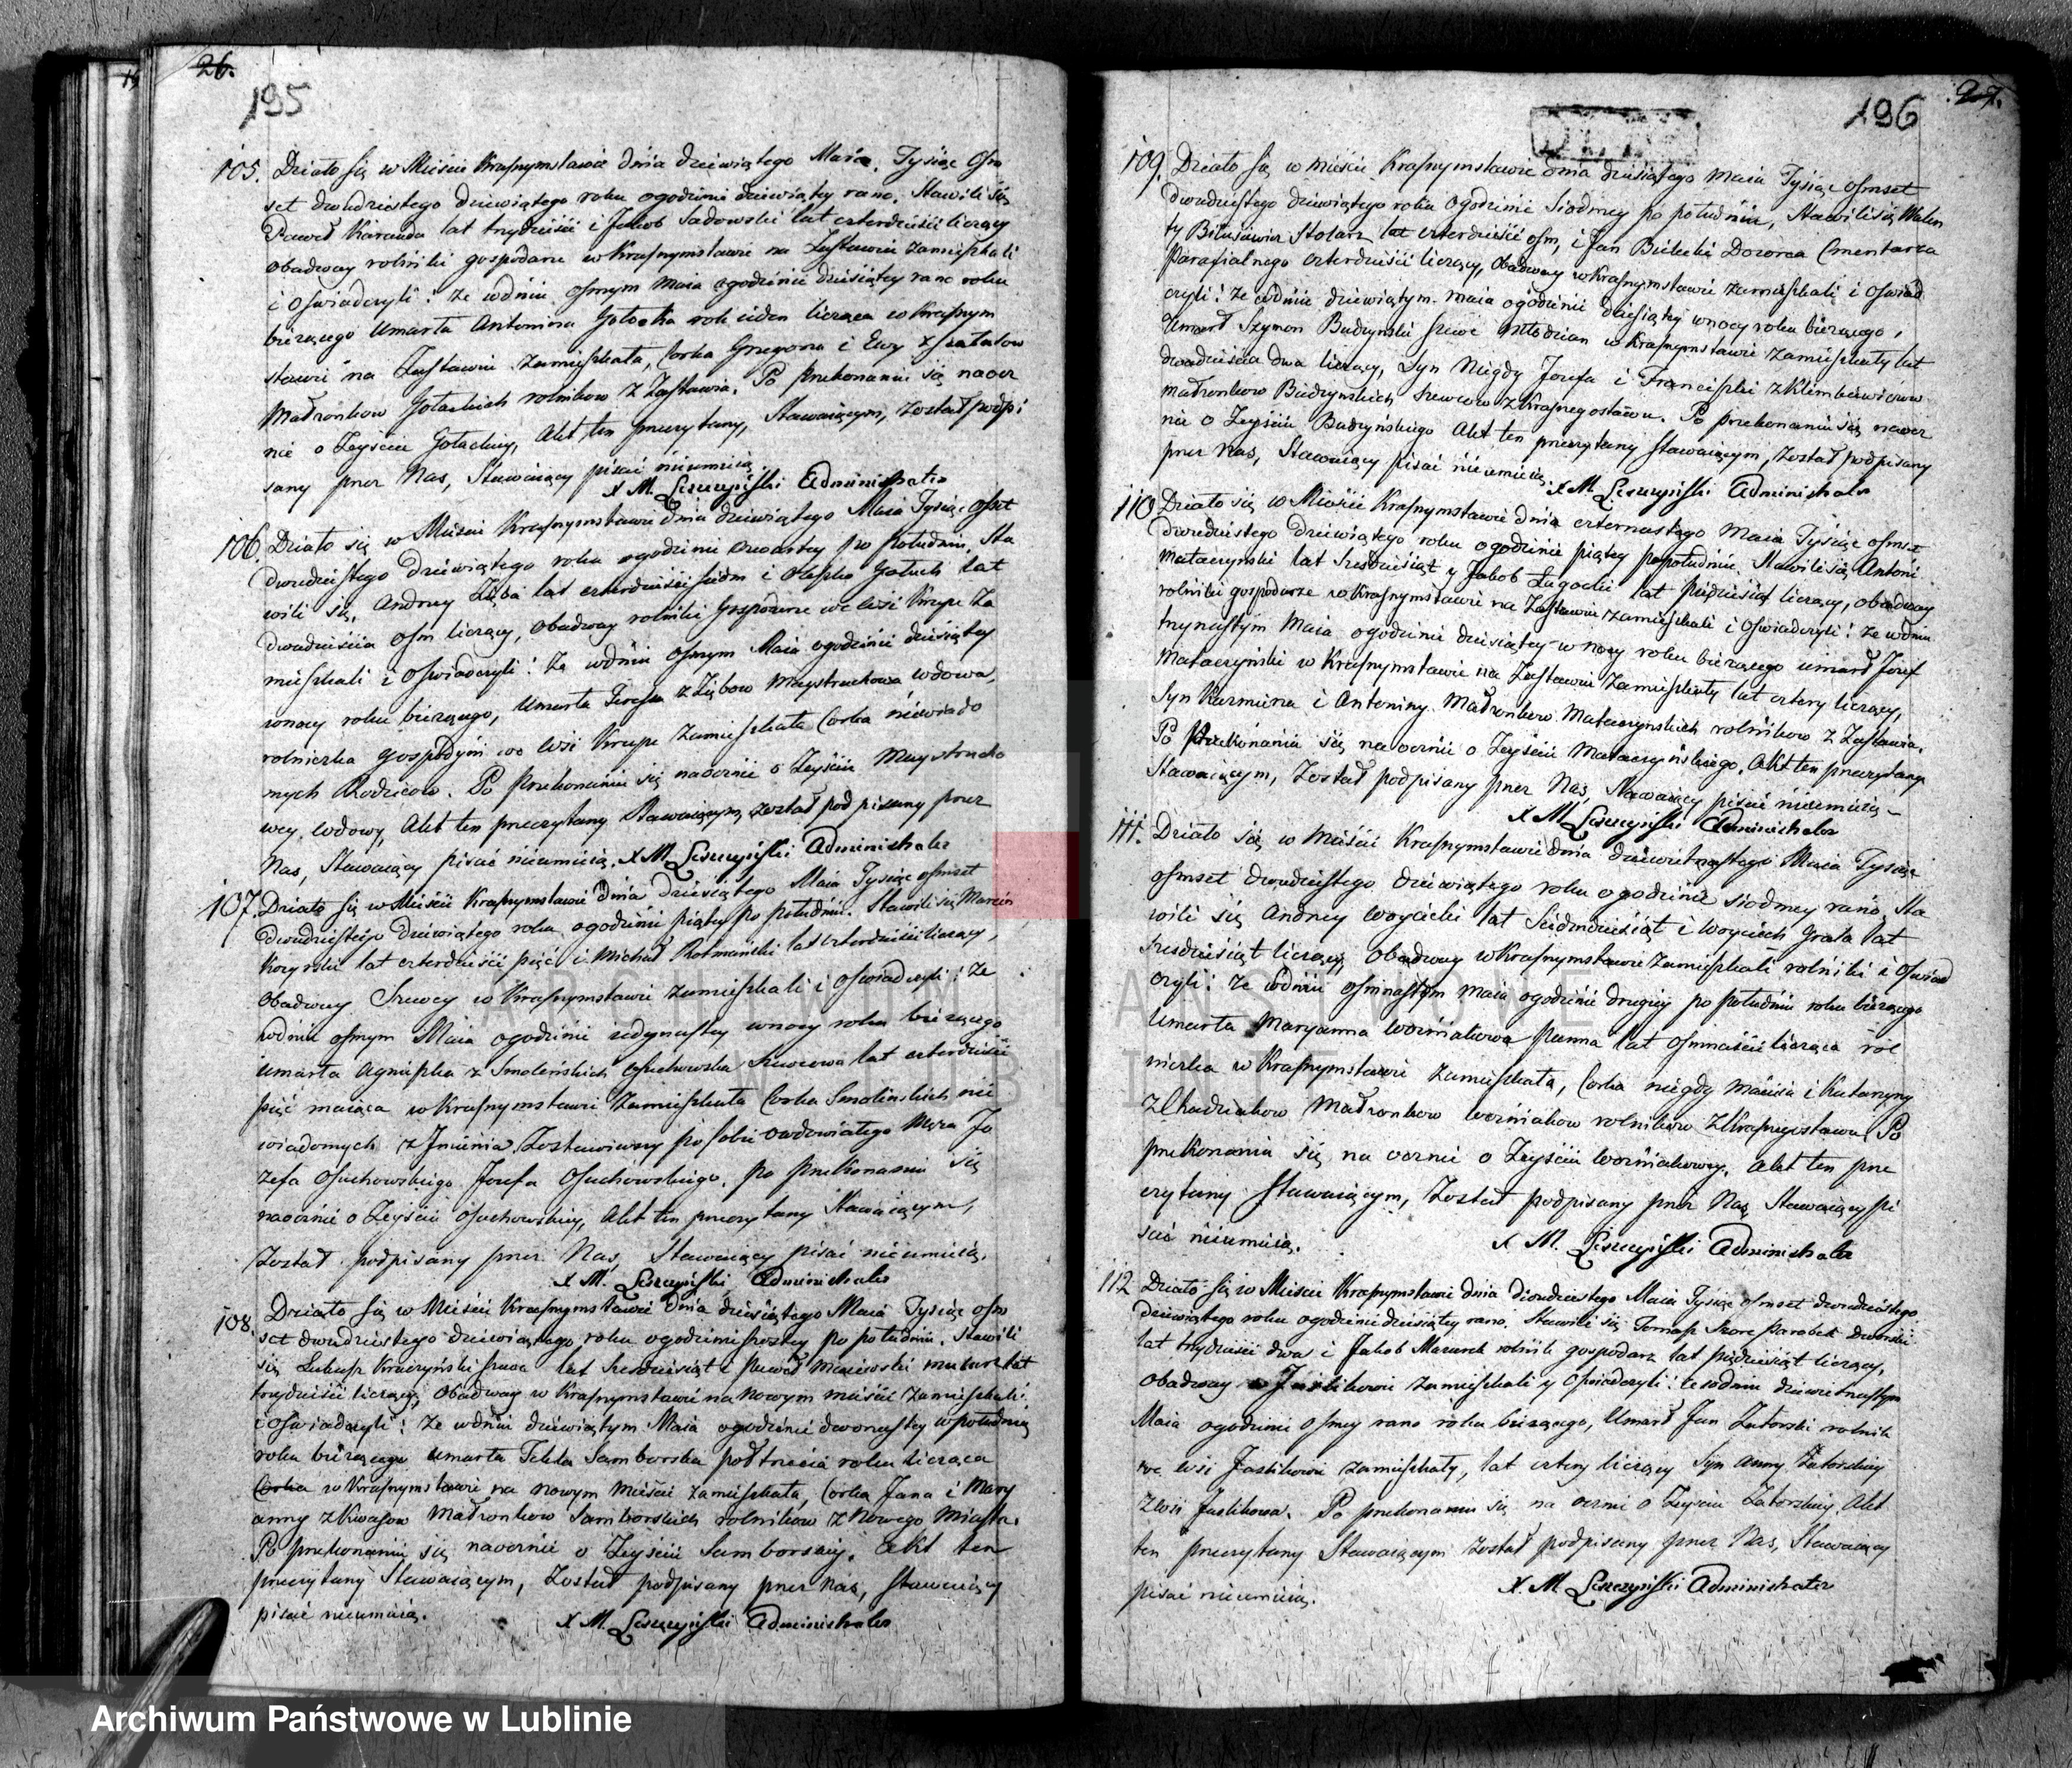 26.
195
105. Działo się w Mieście Krasnymstawie dnia dziewiątego Maia, Tysiąc Ośm
set dwudziestego dziewiątego roku ogodzinie dziewiątey rano. Stawili się
Paweł Karauda lat trzydzieści i Jakob Sadowski lat czterdzieści liczący
obadway rolniki gospodarze w Krasnymstawie na Zastawiu zamieszkali
i Oświadczyli: że wdniu osmym Maia ogodzinie dziesiątey rano roku
bieżącego Umarła Antonina Gołocka rok ieden licząca w Krasnym
stawie na Zastawiu zamieszkała, Corka Grzegorza i Ewy z
Małżonkow Gołackich rolnikow z Zastawia. Po przekonaniu się naocz
nie o Zeyściu Gołackiey, Akt ten przeczytany, Stawaiącym, został podpi
sany przez Nas, Stawaiący pisać nieumieią.
X M. Leszczyński Administrator
106. Działo się w Mieście Krasnymstawie dnia dziewiątego Maia Tysiąc Ośmset
dwudziestego dziewiątego roku ogodzinie czwartey po południu, Sta
wili się, Andrzey Zięba lat czterdzieści siedm i Olesko Gołuch lat
dwadzieścia osm liczący, obadway rolniki Gospodarze we Wsi Krupe za
mieszkali i Oświadczyli: że wdniu Osmym Maia ogodzinie dziesiątey
wnocy roku bieżącego, Umarła Teressa z Ziębow Maystrukowa wdowa,
rolniczka gospodyni we Wsi Krupe zamieszkała Corka niewiado
mych Rodzicow. Po Przekonaniu się naocznie o Zeyściu Maystruko
wey wdowy, Akt ten przeczytany Stawaiącym, został podpisany przez
Nas, Stawaiący pisać nieumieią. X M. Leszczyński Administrator
107. Działo się w Mieście Krasnymstawie dnia dziesiątego Maia Tysiąc ośmset
dwudziestego dziewiątego roku ogodzinie piątey po południu. Stawili się Marcin
Kozyrski lat czterdzieści pięć i Michał Rotmański lat czterdzieści liczący,
obadway Szewcy w Krasnymstawie zamieszkali i Oświadczyli: że
wdniu osmym Maia ogodzinie iedynastey wnocy roku bieżącego
umarła Agnieszka z Smoleńskich Osuchowska Szewcowa lat czterdzieści
pięć maiąca w Krasnymstawie zamieszkała Corka Smolinskich nie
wiadomych z Jmienia, Zostawiwszy po sobie owdowiałego Męża Jo
zefa Osuchowskiego Jozefa Osuchowskiego, po przekonaniu się
naocznie o Zeyściu Osuchowskiey, Akt ten przeczytany Stawaiącym,
został podpisany przez Nas, Stawaiący pisać nieumieią.
X M. Leszczyński Administrator
108. Działo się w Mieście Krasnymstawie dnia dziesiątego Maia Tysiąc ośm
set dwudziestego dziewiątego roku ogodzinie szostey po południu. Stawili
się Łukasz Kraczyński lat sześdziesiąt i Paweł Maiewski lat
trzydzieści liczący, obadway w Krasnymstawie na Nowym mieście zamieszkali
i Oświadczyli: że wdniu dziewiątym Maia ogodzinie dwonastey wpołudnie
roku bieżącego umarła Tekla Samborska połtrzecia roku licząca
w Krasnymstawie na nowym mieście zamieszkała, Corka Jana i Mary
anny z Kwasow Małżonkow Samborskich rolnikow z Nowego Miasta.
Po przekonaniu się naocznie o Zeyściu Samborskiey. Akt ten
przeczytany Stawaiącym, został podpisany przez Nas, Stawaiący
pisać nieumieią. X M. Leszczyński Administrator
27.
196
109. Działo się w mieście Krasnymstawie dnia dziesiątego maia Tysiąc ośmset
dwudziestego dziewiątego roku ogodzinie Siodmey po południu, Stawili się Walen
ty Stolarz lat czterdzieści osm, i Jan Bielecki Dozorca Cmentarza
Parafialnego czterdzieści liczący, obadway w Krasnymstawie zamieszkali i Oświad
czyli: że wdniu dziewiątym maia ogodzinie dziesiątey wnocy roku bieżącego,
Umarł Szymon Budzynski szewc Młodzian w Krasnymstawie zamieszkały lat
dwadzieścia dwa liczący, Syn Niegdy Jozefa i Franciszki z Klimkiewiczow
Małżonkow Budzynskich szewcow z Krasnegostawu. Po przekonaniu się naocz
nie o Zeyściu Budzyńskiego Akt ten przeczytany Stawaiącym, został podpisany
przez Nas, Stawaiący pisać nieumieią. X M. Leszczyński Administrator
110 Działo się w Mieście Krasnymstawie dnia czternastego Maia Tysiąc ośmset
dwudziestego dziewiątego roku ogodzinie piątey popołudniu. Stawili się Antoni
Mataczynski lat Sześdziesiąt y Jakob Zagocki lat piędziesiąt liczący, obadway
rolniki gospodarze w Krasnymstawie na Zastawiu zamieszkali i Oświadczyli: że wdniu
trzynastym Maia ogodzinie dziesiątey w nocy roku bieżącego umarł Jozef
Mataczyński w Krasnymstawie na Zastawiu zamieszkały lat cztery liczący,
Syn Kazmirza i Antoniny Małżonkow Mataczynskich rolnikow z Zastawia.
Po Przekonaniu się naocznie o Zeyściu Mataczyńskiego, Akt ten przeczytany
Stawaiącym, został podpisany przez Nas, Stawaiący pisać nieumieią
X M. Leszczyński Administrator
111. Działo się w Mieście Krasnymstawie dnia dziewietnastego Maia Tysiąc
ośmset dwudziestego dziewiątego roku ogodzinie siodmey rano, Sta
wili się Andrzey Woycicki lat Siedmdziesiąt i Woyciech Grata lat
sześdziesiąt liczący, Obadway w Krasnymstawie zamieszkali rolniki i Oświad
czyli: że wdniu osmnastym maia ogodzinie drugiey po południu roku bieżącego
Umarła Maryanna Wozniakowa panna lat ośmnaście licząca rol
niczka w Krasnymstawie zamieszkała, Corka niegdy Macieia i Katarzyny
z Chadziakow Małżonkow Wozniakow rolnikow z Krasnegostawu, Po
przekonaniu się na ocznie o Zeyściu Wozniakowey, Akt ten prze
czytany Stawaiącym, został podpisany przez Nas, Stawaiący pi
sać nieumieią. X M. Leszczyński Administrator
112 Działo się w Mieście Krasnymstawie dnia dwudziestego Maia Tysiąc ośmset dwudziestego
dziewiątego roku ogodzinie dziesiątey rano. Stawili się Tomasz Skora parobek dworski
lat trzydzieści dwa i Jakob Mazurek rolnik gospodarz lat piędziesiąt liczący,
obadway Jaslikowie zamieszkali y Oświadczyli: że wdniu dziewietnastym
Maia ogodzinie osmey rano roku bieżącego, Umarł Jan Zatorski rolnik
we wsi Jaslikowie zamieszkały, lat cztery liczący Syn Anny Zatorskiey
z Wsi Jaslikowa. Po przekonaniu się na ocznie o Zeyściu Zatorskiey, Akt
ten przeczytany Stawaiącym został podpisany przez Nas, Stawaiący
pisać nieumieią. X. M Leszczyński Administrator
ARCHIWUM PAŃSTWOWE
W LUBLINIE
Archiwum Państwowe w Lublinie